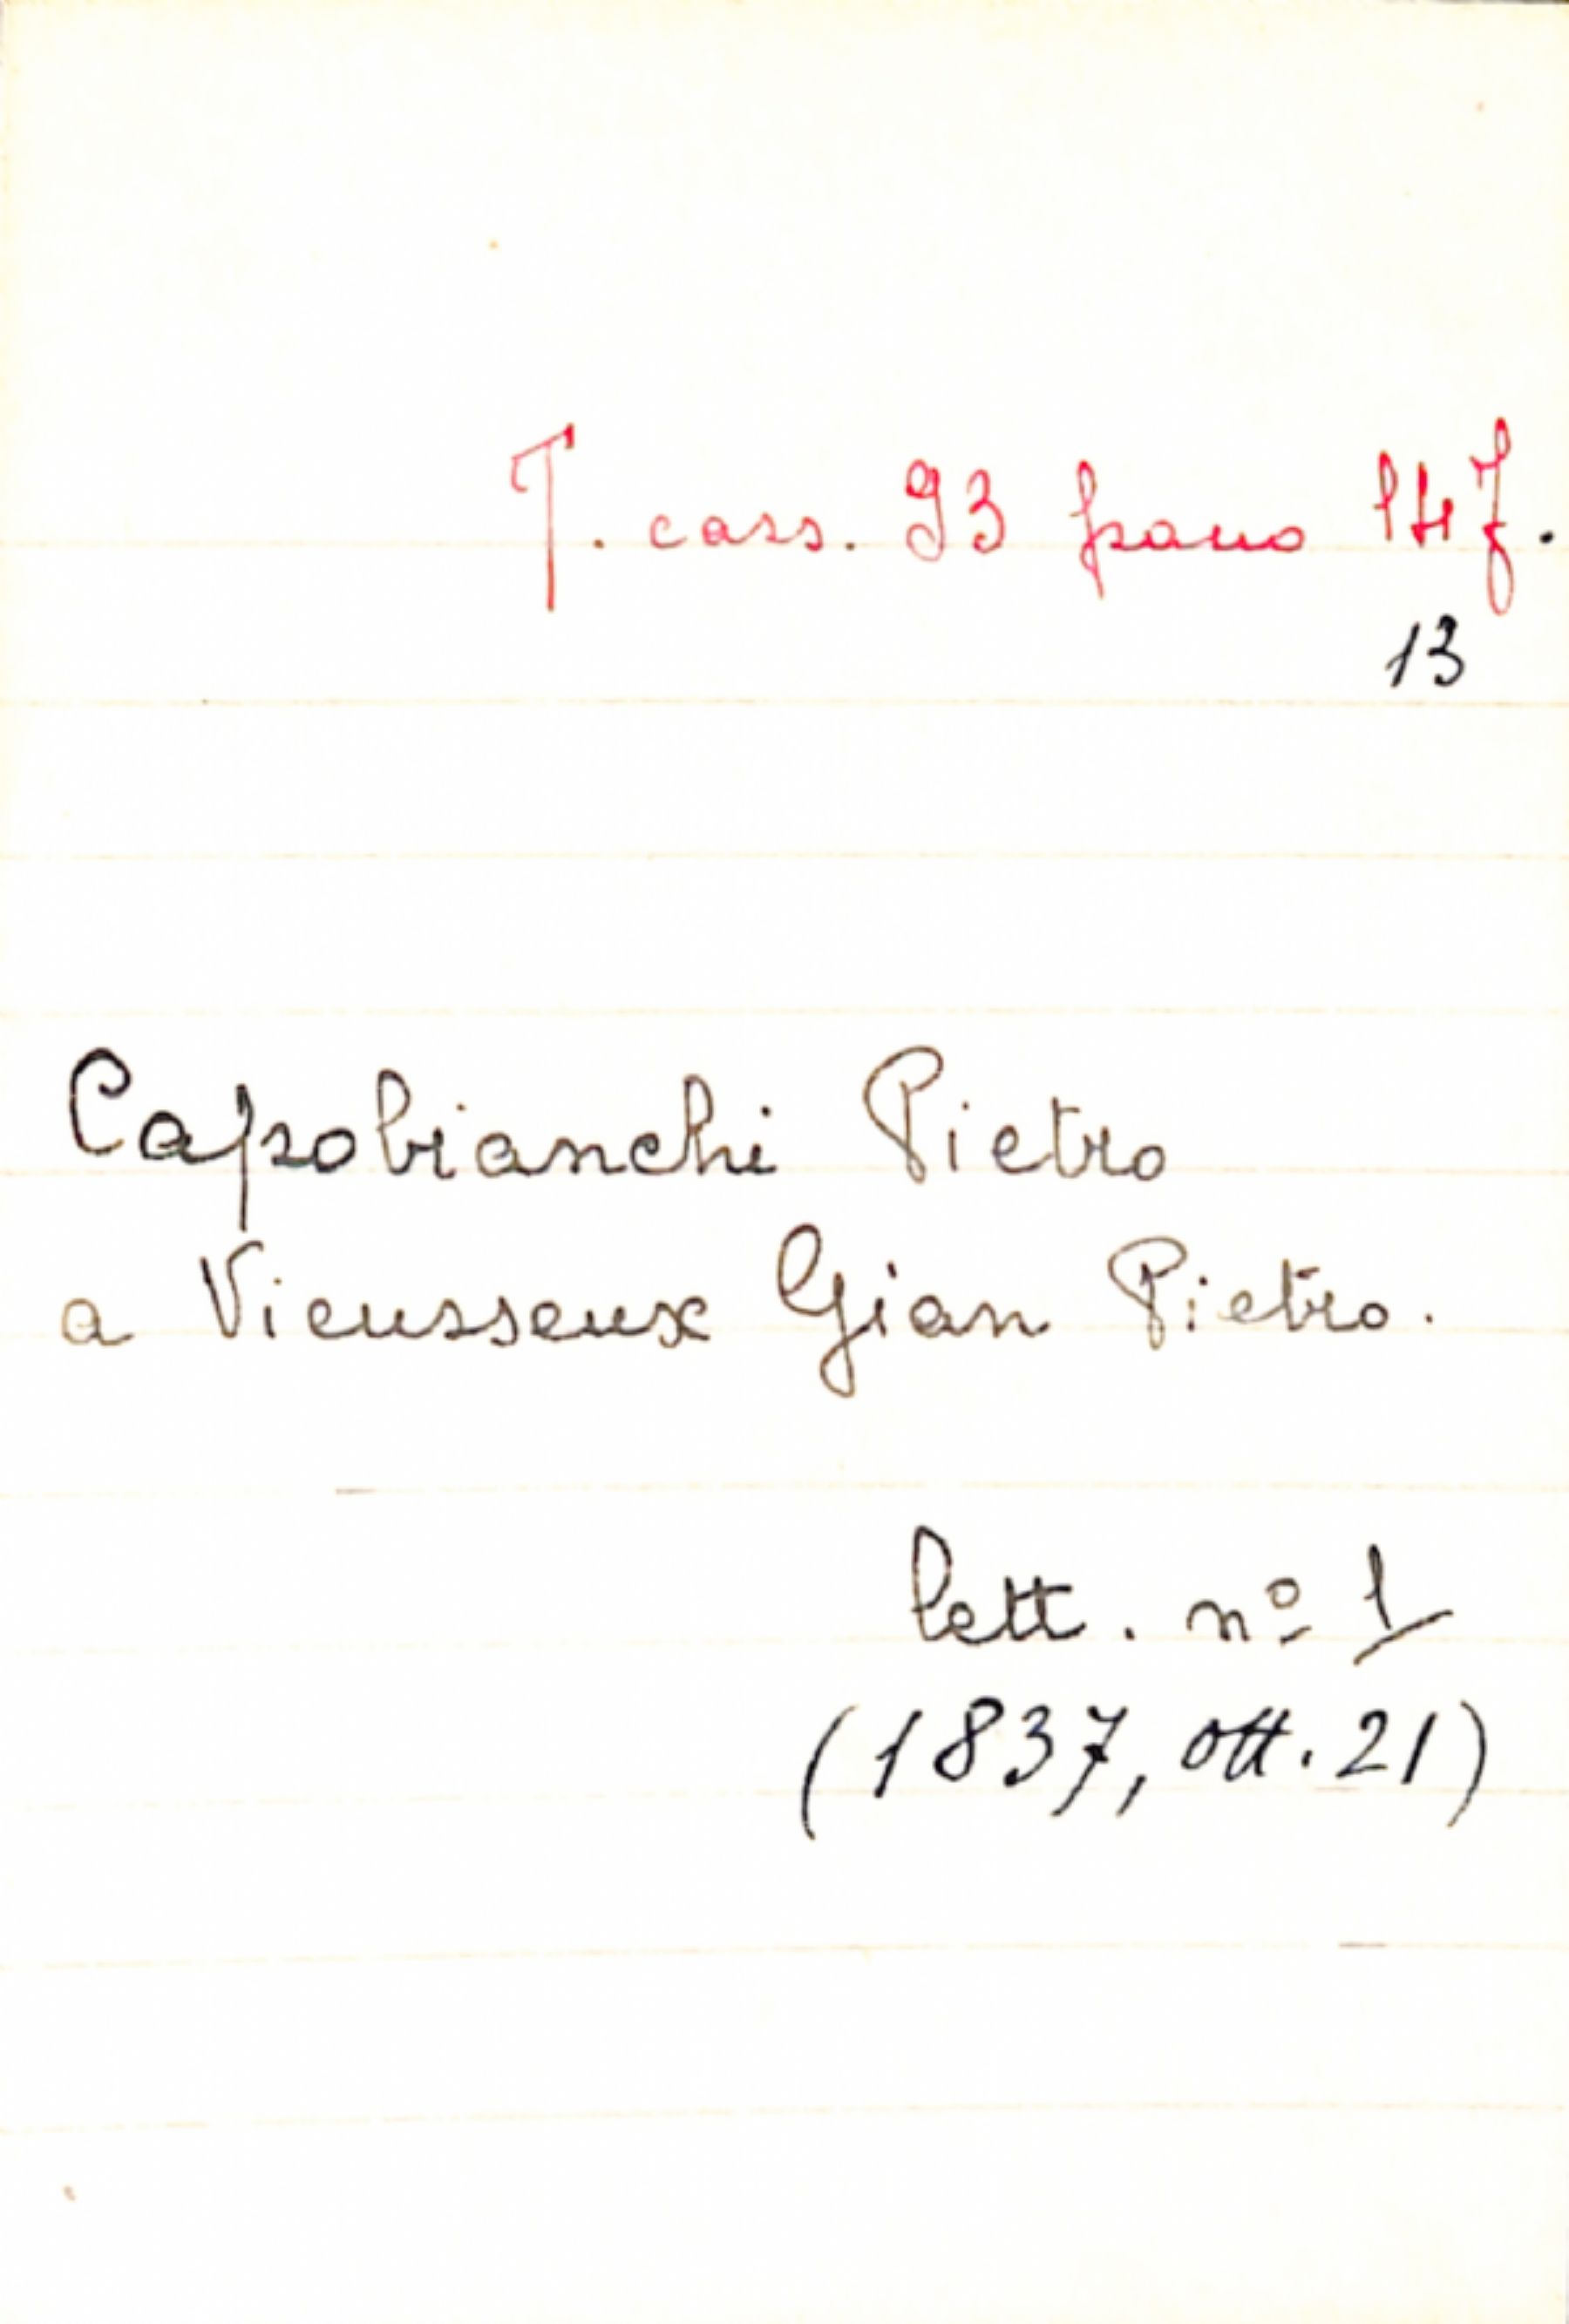 T. cass. 93 pano 147.
13
Capobianchi Pietro
a Vieusseux Gian Pietro.
lett. nº 1
(1837, ott. 21)